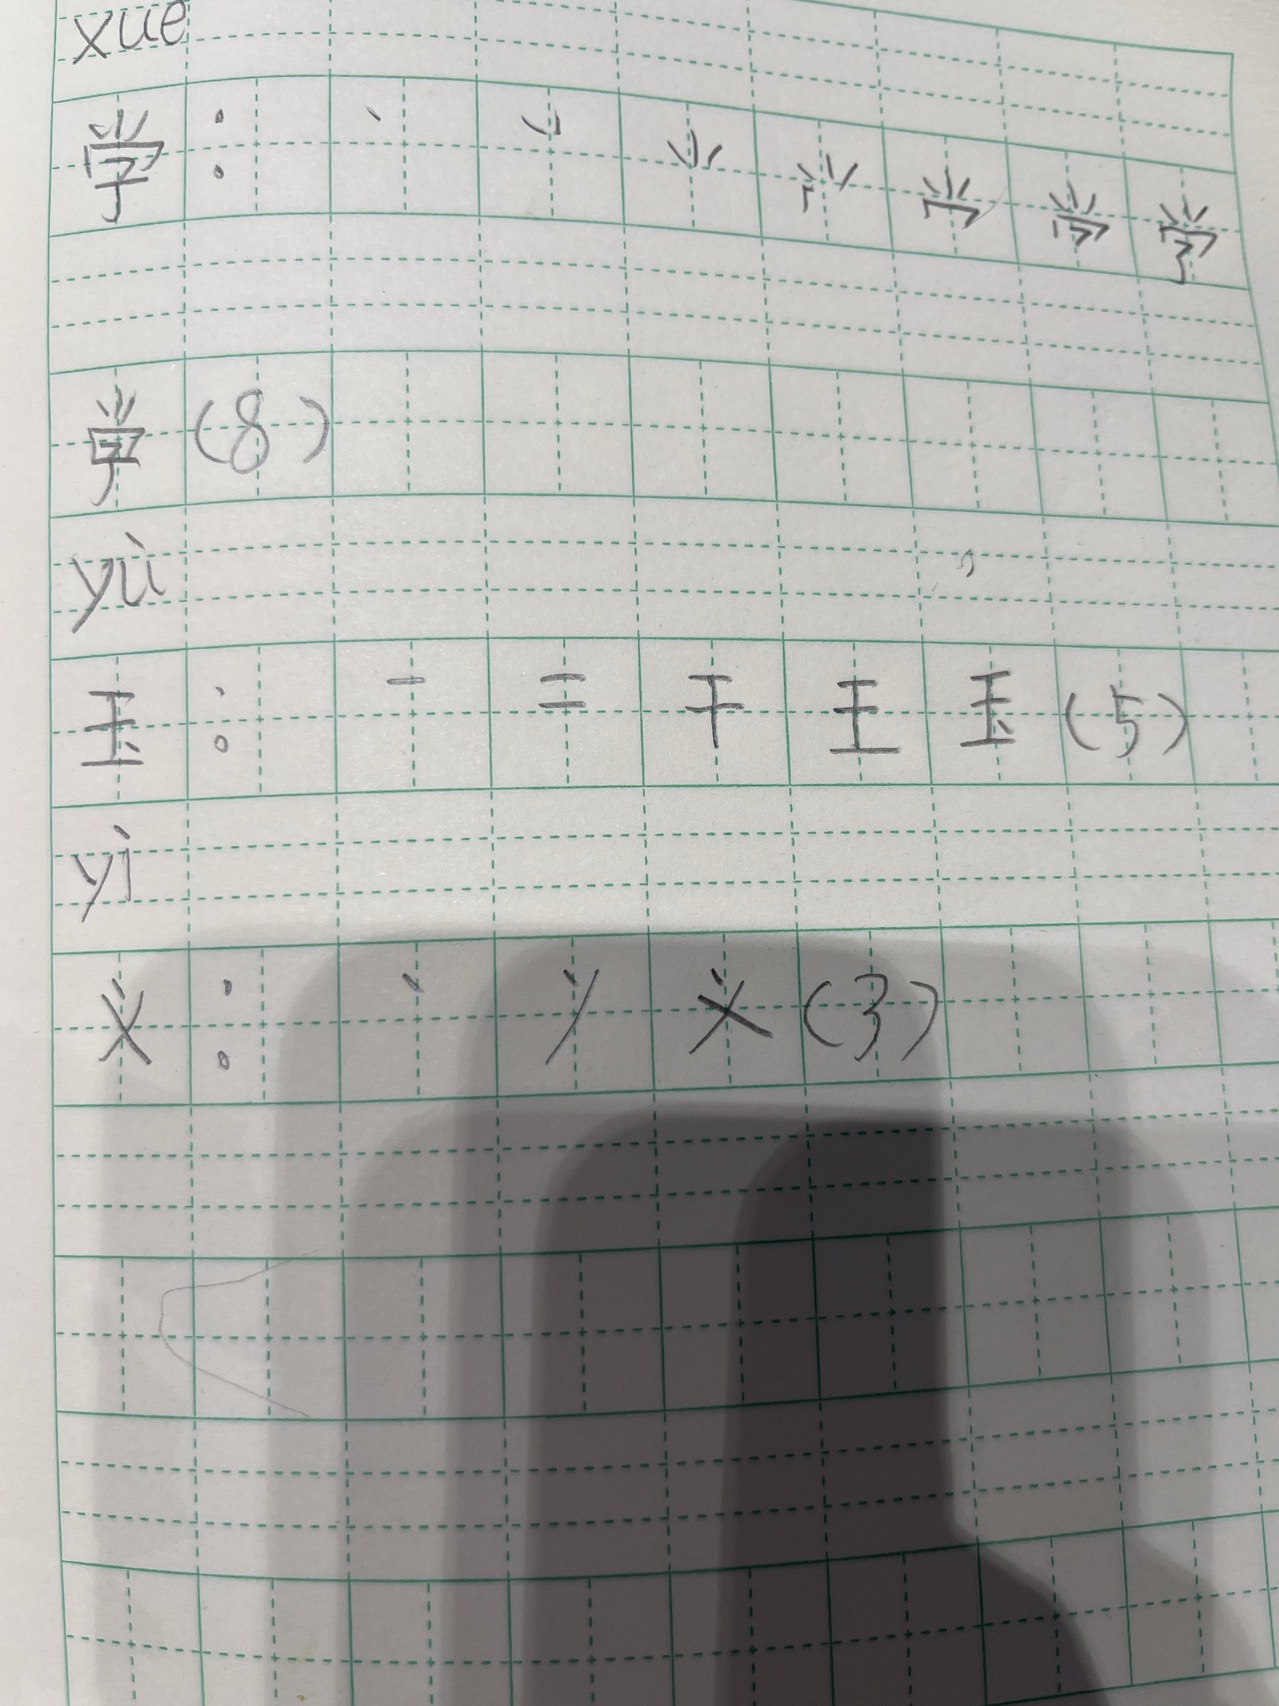 xue
学： 丶 ⺀ ⺌ 学
学(8)
yù
玉： 一 二 干 王 玉(5)
yì
义： 丶 义(3)